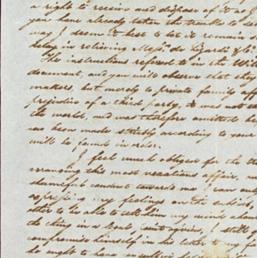 a right to receive and dispose of it as
you have already taken the trouble to
way I deem it best to let it remain
delay in relieving Messrs. de Lizardi & Co.
The instructions referred to in the Will
document, and you will observe that they
matters but merely to private family aff
prejudice of a third party, it was not
the world, and was therefore omitted
has been made strictly according to your
will be found in order.
I feel much obliged for the
arranging this most vexatious affair,
shameful conduct towards me I can only
express my feelings on the subject,
to be able to tell him my mind
the thing in a
compromise himself in his letter to my
he ought to have